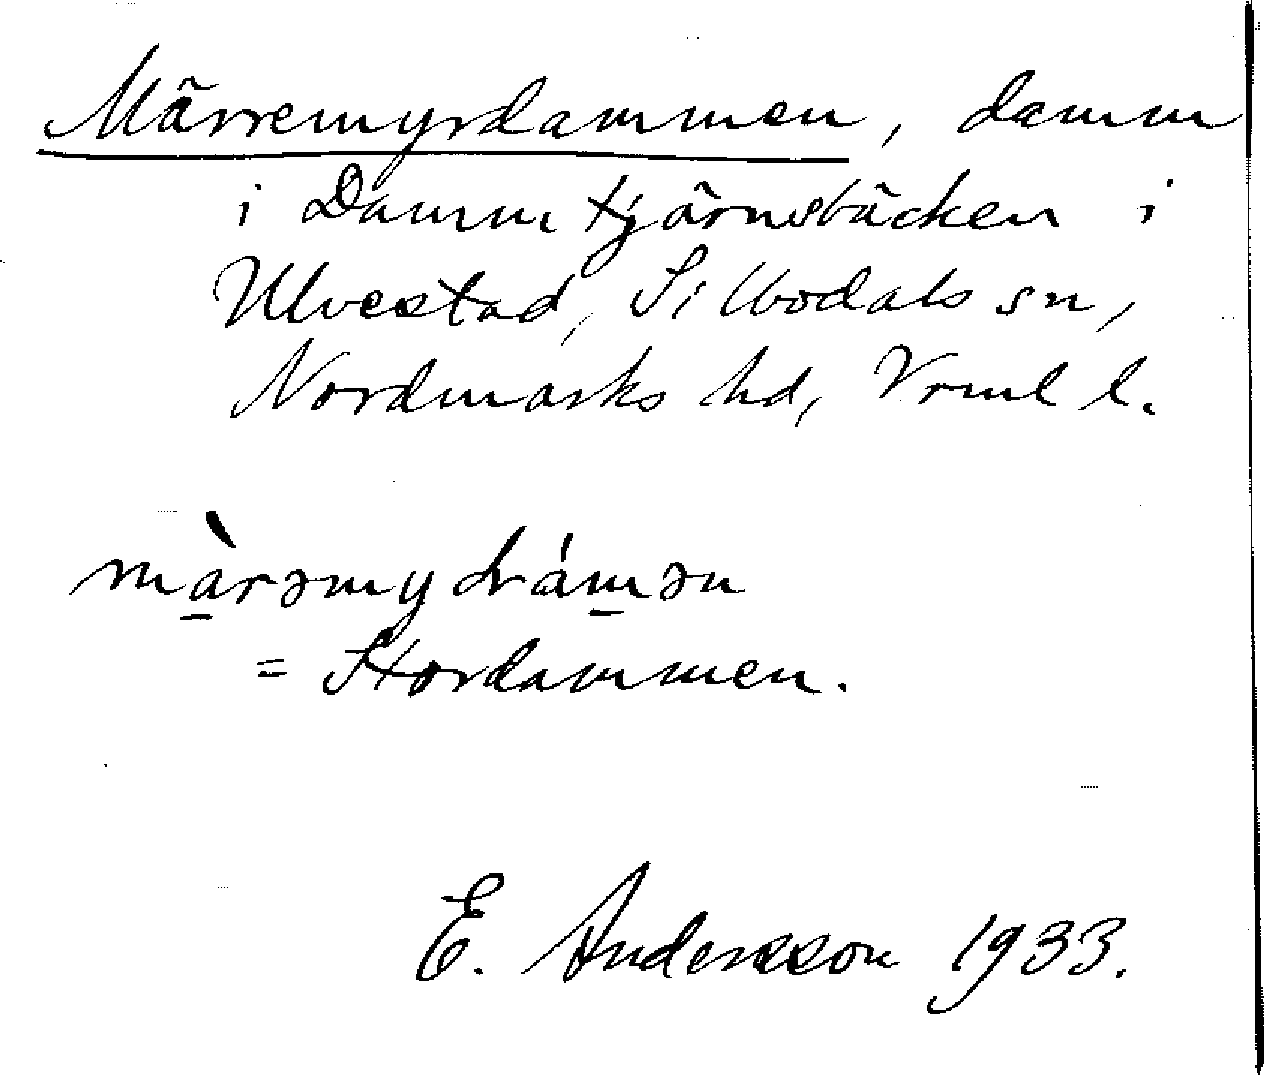 Märremyrdammen, damm
i Dammtjärnsbäcken i
Ulvestad, Silbodals sn,
Nordmarks hd, Vrml l.
mà̱rəmydrám̱ən
= Stordammen.
E. Andersson 1933.